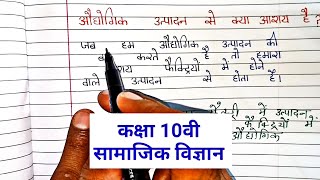 औद्योगिक उत्पादन से क्या आशय है
जब हम औद्योगिक उत्पादन की
करते है तो हमारा
फैक्ट्रियो मे होने
वाले उत्पादन से होता है।
में उत्पादन
फैक्ट्रियों में
औद्योगिक
कक्षा 10वी
सामाजिक विज्ञान